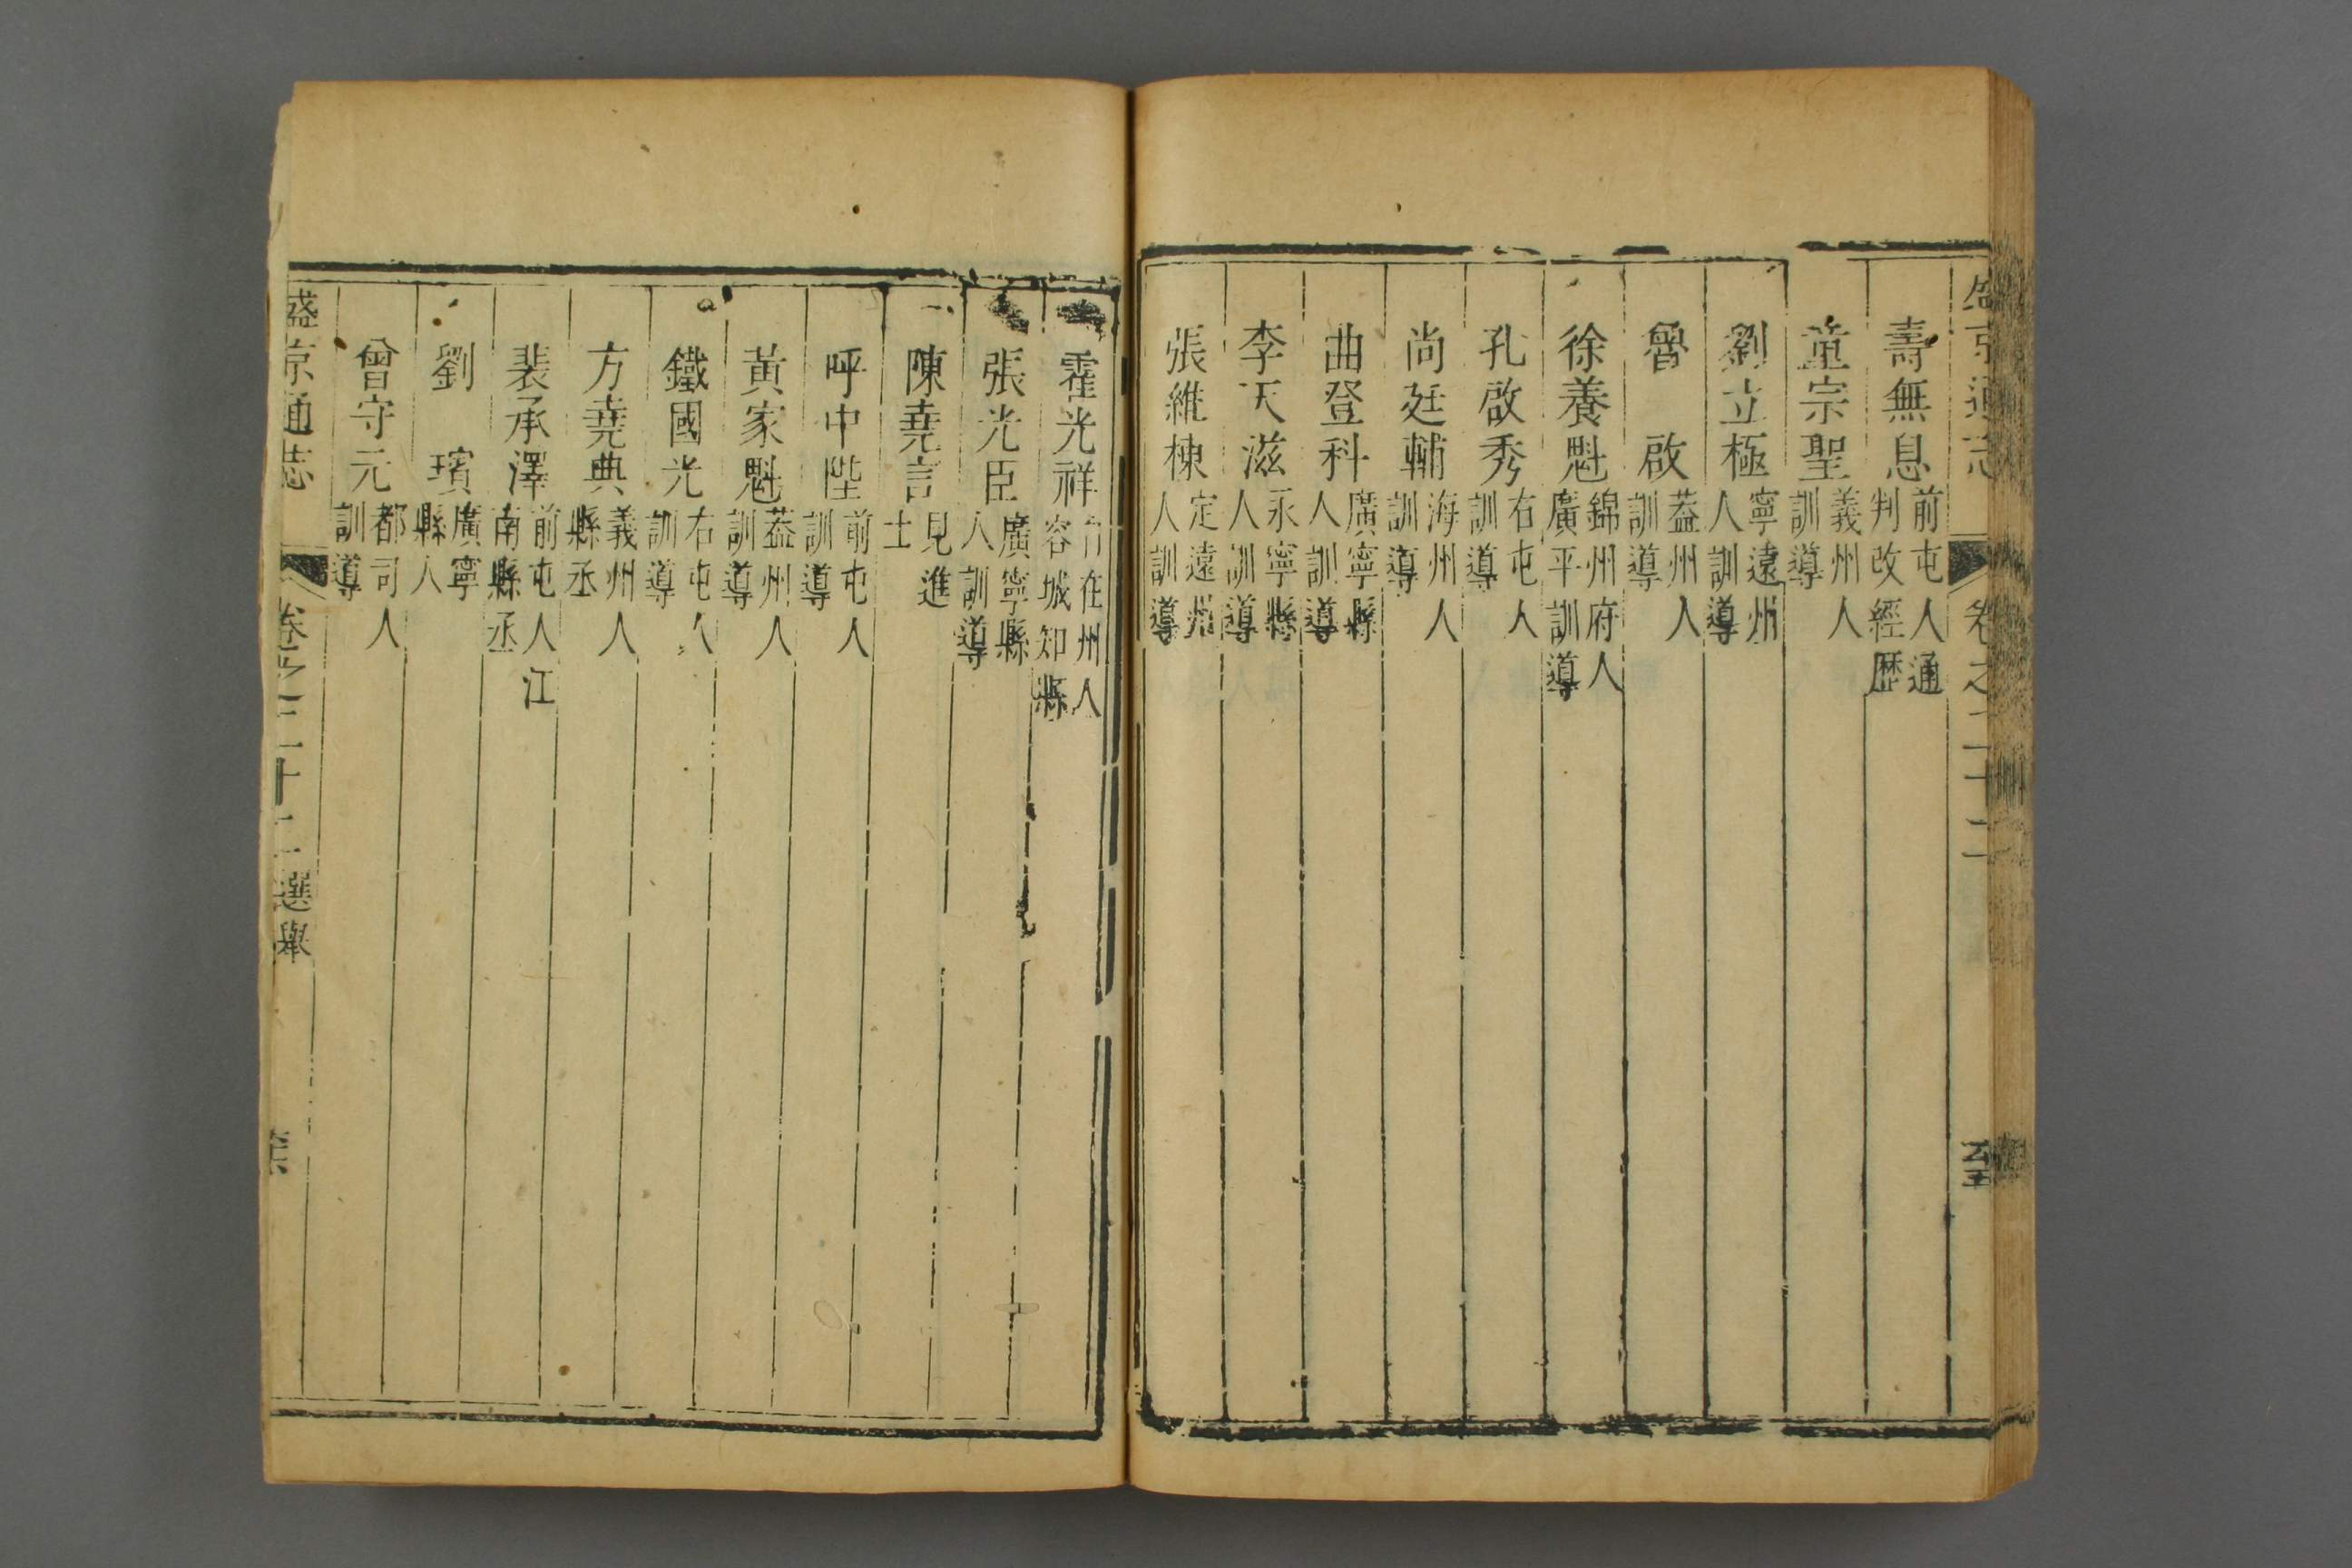 壽無息 前屯人通判改經歷
童宗聖 義州人訓導
劉立極 寧遠州人訓導
魯啟 葢州人訓導
徐養魁 錦州府人廣平訓導
孔啟秀 右屯人訓導
尚廷輔 海州人訓導
曲登科 廣寧縣人訓導
李天滋 永寧縣人訓導
張維棟 定遠州人訓導
霍光祥 在州人容城知縣
張光臣 廣寧縣人訓導
陳堯言 見進士
呼中陛 前屯人訓導
黃家魁 葢州人訓導
鐵國光 右屯人訓導
方堯典 義州人縣丞
裴承澤 前屯人江南縣丞
劉璸 廣寧縣人
曾守元 都司人訓導
盛京通志 卷之二十二 選舉